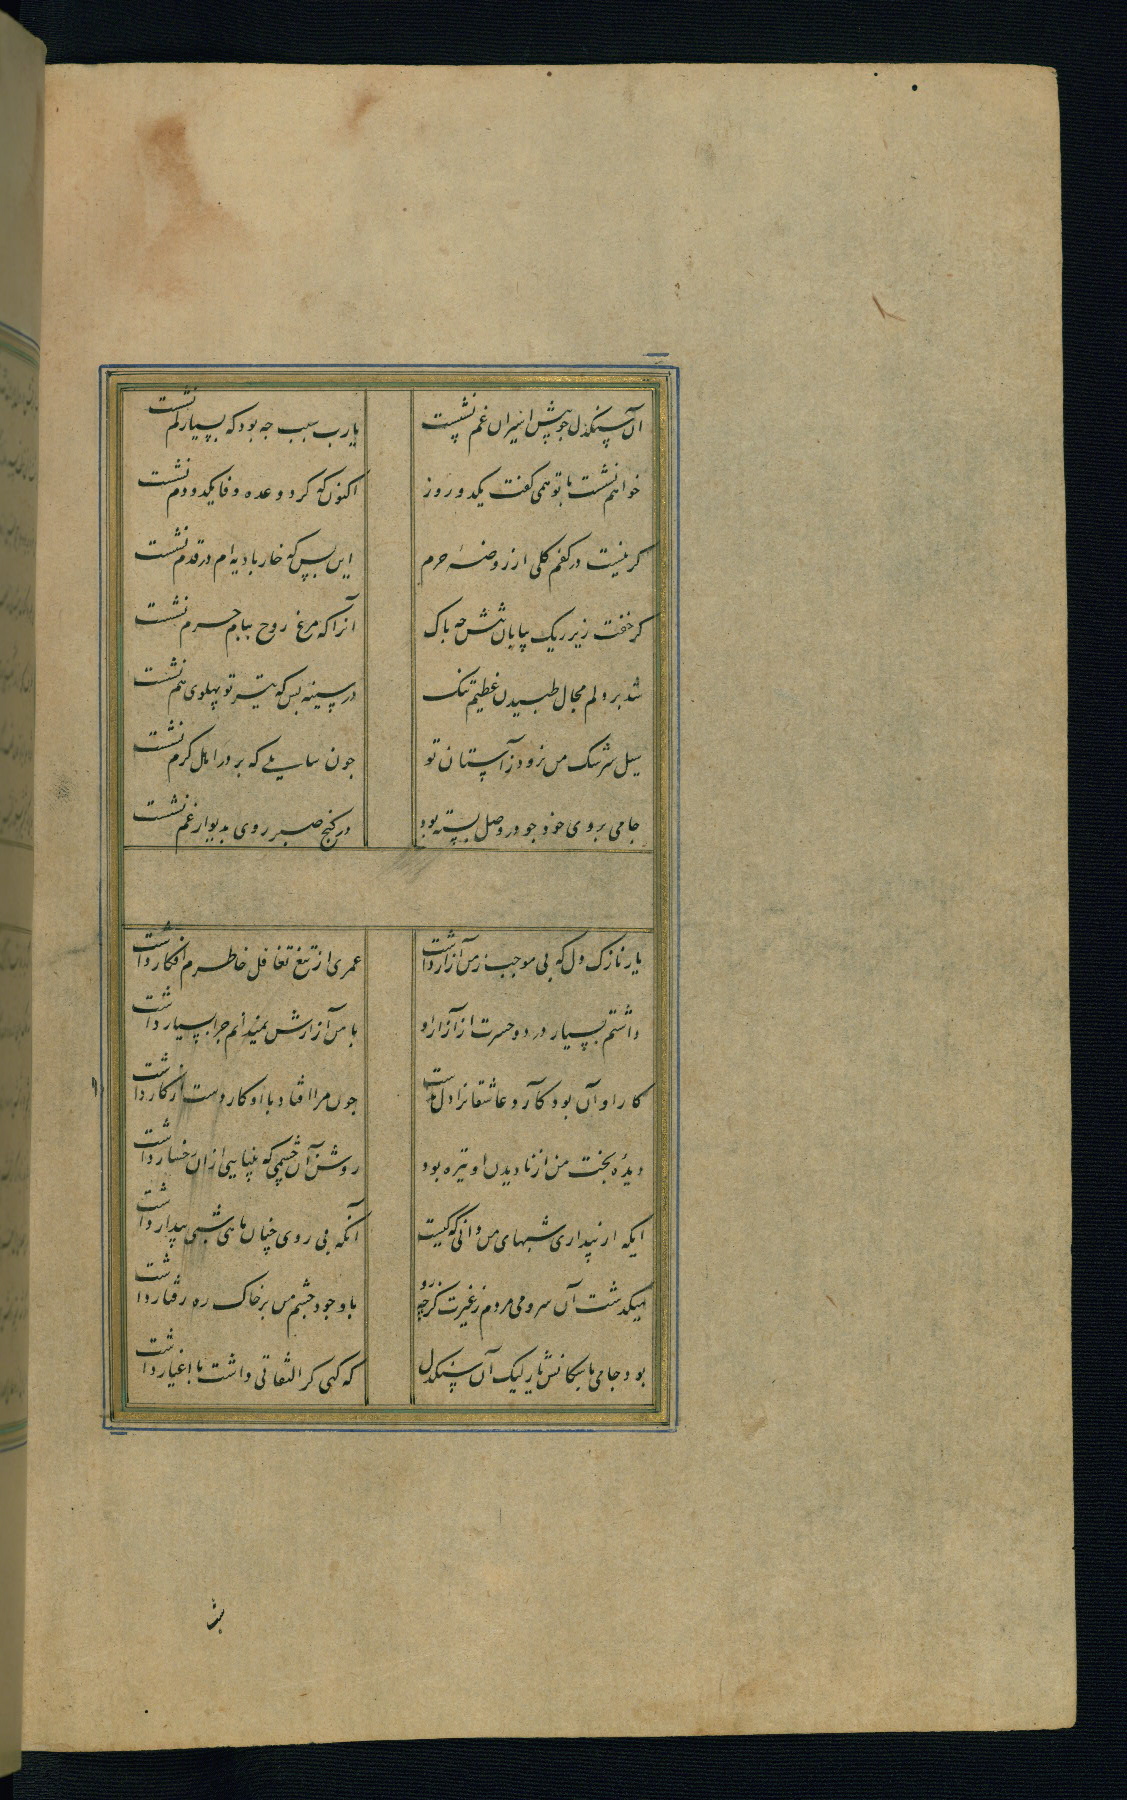 آن سنگدل چو پیش اسیران غم نشست یارب سبب چه بود که بسیار کم نشست
خواهم نشست با تو همی گفت یکد و روز اکنون که کرد وعده وفا یکدو دم نشست
کر نیست در کفم کلی از روضهٔ حرم این بس که خار بادیه ام در قدم نشست
کر خفت زیر ریک بیابان تنش چه باک آنرا که مرغ روح ببام حرم نشست
شد بر دلم مجال طپیدن عظیم تنک در سینه بس که تیر تو پهلوی هم نشست
سیل سرشک من نرود ز آستان تو چون سایلی که بر در اهل کرم نشست
جامی بروی خود چو در وصل بسته بود در کنج صبر روی بدیوار غم نشست
یار نازک دل که بی موجب ز من آزار داشت عمری از تیغ تغافل خاطرم افکار داشت
داشتم بسیار درد و حسرت از آزار او با من آزارش نمیدانم چرا بسیار داشت
کار او آن بود کآرد عاشقانرا دل بدست چون مرا افتاد با او کار دست از کار داشت
دیدهٔ بخت من از نادیدن او تیره بود روشن آن چشمی که بینایی از آن رخسار داشت
ایکه از بیداری شبهای من دانی که کیست آنکه بی روی چنان ماهی شبی بیدار داشت
میگذشت آن سرو و می مردم ز غیرت کرچه رو با وجود چشم من بر خاک ره رفتار داشت
بود جامی با سکانش یار لیک آن سنگدل که کهی کر التفاتی داشت با اغیار داشت